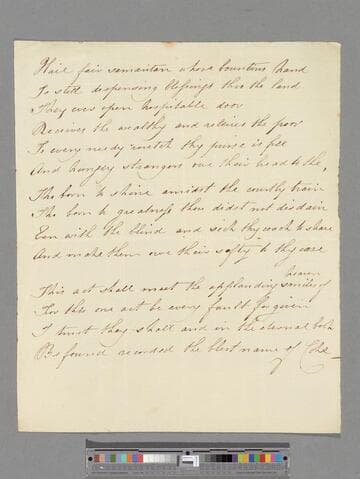 Hail fair samaritan whose bounteous hand
Is still dispensing blessings thro the land
Thy ever open hospitable door
Receives the wealthy and relieves the poor
To every needy wretch thy purse is free
And hungry strangers owe their bread to the,
Tho born to shine amidst the courtly train
Tho born to greatness thou didst not disdain
Een with the blind and sick thy coach to share
And make them owe their safty to thy care
This act shall meet the applauding smiles of heaven
For this one act be every fault forgiven
I trust they shall and in the eternal
Be found recorded the blest name of